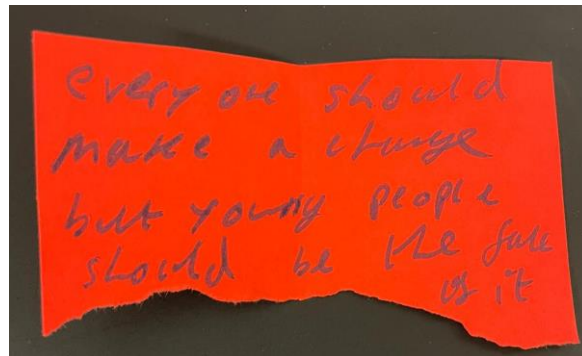 every one should
make a change
but young people
should be the face
of it